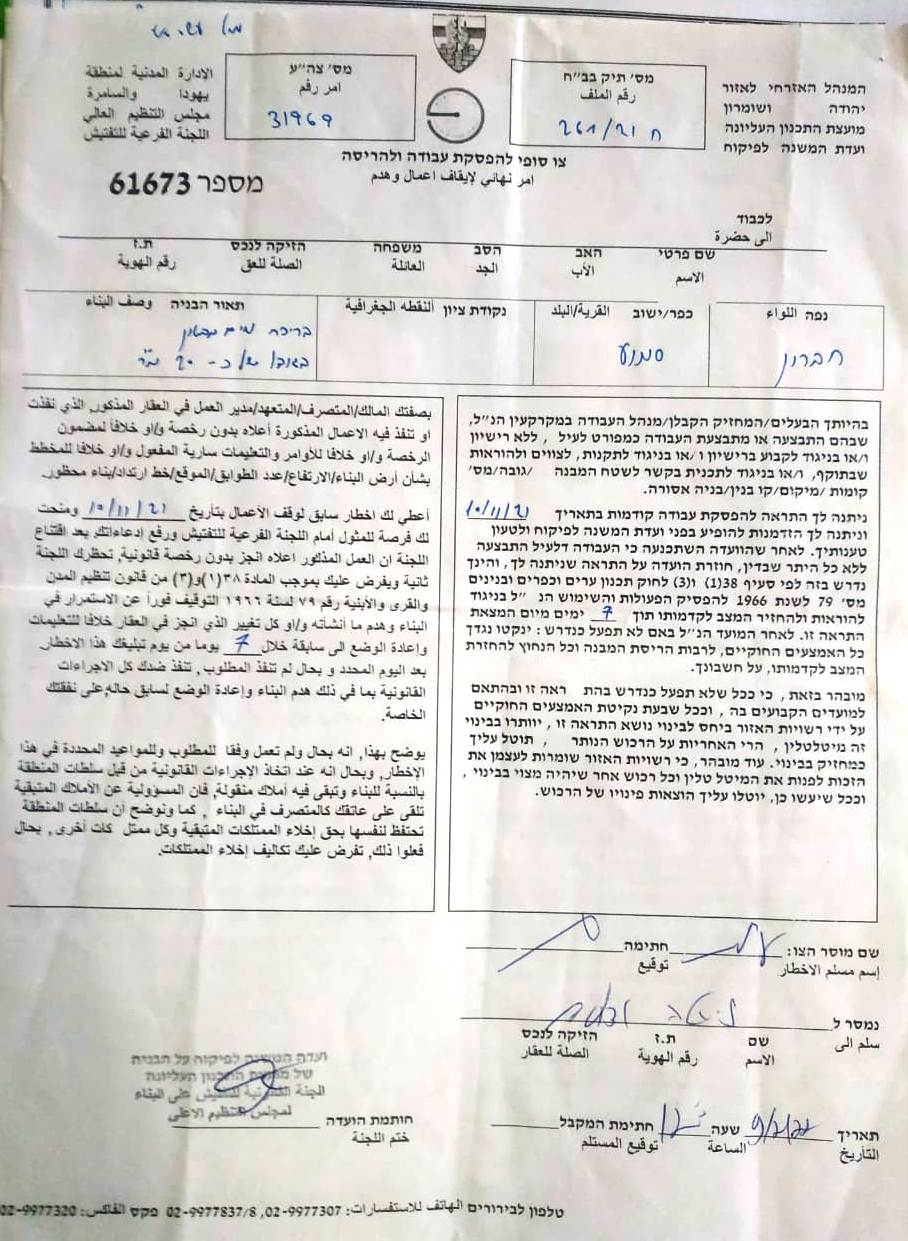 המנהל האזרחי לאזור
יהודה ושומרון
מועצת התכנון העליונה
ועדת המשנה לפיקוח
מס׳ תיק בב״ח
رقم الملف
ח 261/21
מס׳ צה״ע
امر رقم
31969
الإدارة المدنية لمنطقة
يهودا والسامرة
مجلس التنظيم العالي
اللجنة الفرعية للتفتيش
צו סופי להפסקת עבודה ולהריסה
امر نهائي لإيقاف اعمال وهدم
מספר 61673
לכבוד
الى حضرة
שם פרטי האב הסב משפחה הזיקה לנכס ת.ז
الاسم الأب الجد العائلة الصلة للعق رقم الهوية
נפה اللواء
חברון
כפר/ישוב القرية/البلد
סמוע
נקודת ציון النقطه الجغرافية
תאור הבניה وصف البناء
בריכת מים מבטון
בגודל של כ- 20 מ״ר
בהיותך הבעלים/המחזיק הקבלן/מנהל העבודה במקרקעין הנ״ל,
שבהם התבצעה או מתבצעת העבודה כמפורט לעיל , ללא רישיון
ו/או בניגוד לקבוע ברישיון ו/או בניגוד לתקנות, לצווים ולהוראות
שבתוקף, ו/או בניגוד לתכנית בקשר לשטח המבנה /גובה/מס׳
קומות /מיקום/קו בנין/בניה אסורה.
ניתנה לך התראה להפסקת עבודה קודמות בתאריך 10/11/21
וניתנה לך הזדמנות להופיע בפני ועדת המשנה לפיקוח ולטעון
טענותיך. לאחר שהוועדה השתכנעה כי העבודה דלעיל התבצעה
ללא כל היתר שבדין, חוזרת הועדה על התראה שניתנה לך, והינך
נדרש בזה לפי סעיף 38(1) ו(3) לחוק תכנון ערים וכפרים ובנינים
מס׳ 79 לשנת 1966 להפסיק הפעולות והשימוש הנ ״ל בניגוד
להוראות ולהחזיר המצב לקדמותו תוך 7 ימים מיום המצאת
התראה זו. לאחר המועד הנ״ל באם לא תפעל כנדרש : ינקטו נגדך
כל האמצעים החוקיים, לרבות הריסת המבנה וכל הנחוץ להחזרת
המצב לקדמותו, על חשבונך.
מובהר בזאת , כי ככל שלא תפעל כנדרש בהת ראה זו ובהתאם
למועדים הקבועים בה , וככל שבעת נקיטת האמצעים החוקיים
על ידי רשויות האזור ביחס לבינוי נושא התראה זו , יוותרו בבינוי
זה מיטלטלין , הרי האחריות על הרכוש הנותר , תוטל עליך
כמחזיק בבינוי. עוד מובהר, כי רשויות האזור שומרות לעצמן את
הזכות לפנות את המיטל טלין וכל רכוש אחר שיהיה מצוי בבינוי ,
וככל שיעשו כן, יוטלו עליך הוצאות פינויו של הרכוש.
بصفتك المالك/المتصرف/المتعهد/مدير العمل في العقار المذكور, الذي نفذت
او تنفذ فيه الاعمال المذكورة أعلاه بدون رخصة و/او خلافاً لمضمون
الرخصة و/او خلافا للأوامر والتعليمات سارية المفعول و/او خلافا للمخطط
بشأن أرض البناء/الارتفاع/عدد الطوابق/الموقع/خط ارتداد/بناء محظور.
أعطي لك اخطار سابق لوقف الأعمال بتأريخ 10/11/21 ومنحت
لك فرصة للمثول أمام اللجنة الفرعية للتفتيش ورفع إدعاءاتك. بعد اقتناع
اللجنة ان العمل المذكور اعلاه انجز بدون رخصة قانونية, تحظرك اللجنة
ثانية ويفرض عليك بموجب المادة ٣٨(١)و(٣) من قانون تنظيم المدن
والقرى والأبنية رقم ٧٩ لسنة ١٩٦٦ التوقيف فوراً عن الاستمرار في
البناء وهدم ما انشأته و/او كل تغيير الذي انجز في العقار خلافا للتعليمات
وإعادة الوضع الى سابقة خلال 7 يوما من يوم تبليغك هذا الاخطار.
بعد اليوم المحدد و بحال لم تنفذ المطلوب , تنفذ ضدك كل الاجراءات
القانونية بما في ذلك هدم البناء وإعادة الوضع لسابق حاله, على نفقتك
الخاصة.
يوضح بهذا, انه بحال ولم تعمل وفقا للمطلوب وللمواعيد المحددة في هذا
الإخطار, وبحال انه عند اتخاذ الاجراءات القانونية من قبل سلطات المنطقة
بالنسبة للبناء وتبقى فيه أملاك منقولة, فان المسؤولية عن الأملاك المتبقية
تلقى على عاتقك كالمتصرف في البناء , كما ونوضح أن سلطات المنطقة
تحتفظ لنفسها بحق إخلاء الممتلكات المتبقية وكل ممتل كات أخرى , بحال
فعلوا ذلك, تفرض عليك تكاليف إخلاء الممتلكات.
שם מוסר הצו: חתימה
إسم مسلم الاخطار توقيع
נמסר ל
سلم الى
שם ת.ז הזיקה לנכס
الاسم رقم الهوية الصلة للعقار
תאריך 9/2/22 שעה חתימת המקבל
التأريخ الساعة توقيع المستلم
ועדת המשנה לפיקוח על הבניה
של מועצת התכנון העליונה
اللجنة الفرعية للتفتيش على البناء
لمجلس التنظيم الاعلى
חותמת הועדה
ختم اللجنة
טלפון לבירורים الهاتف للاستفسارات: 02-9977307, 02-9977837/8 פקס الفاكس: 02-9977320